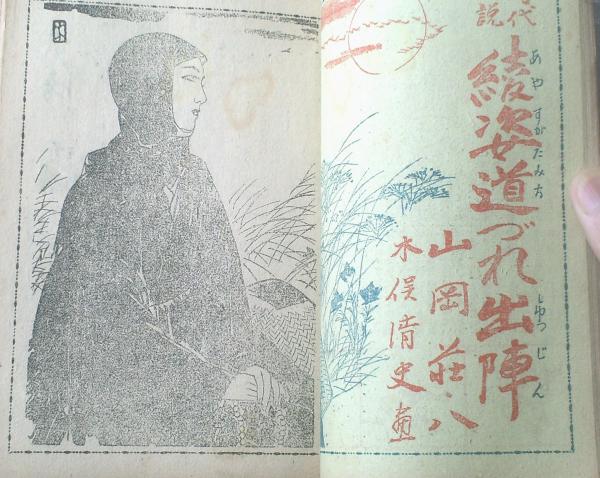 代
説
綾姿道づれ出陣
あやすがたみち
しゆつじん
山岡荘八
木俣清史画